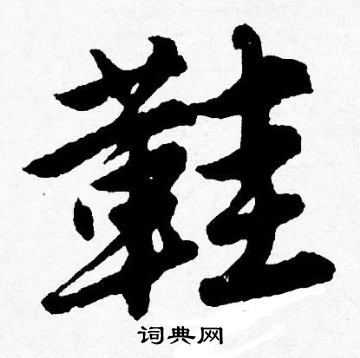 鞋
词典网